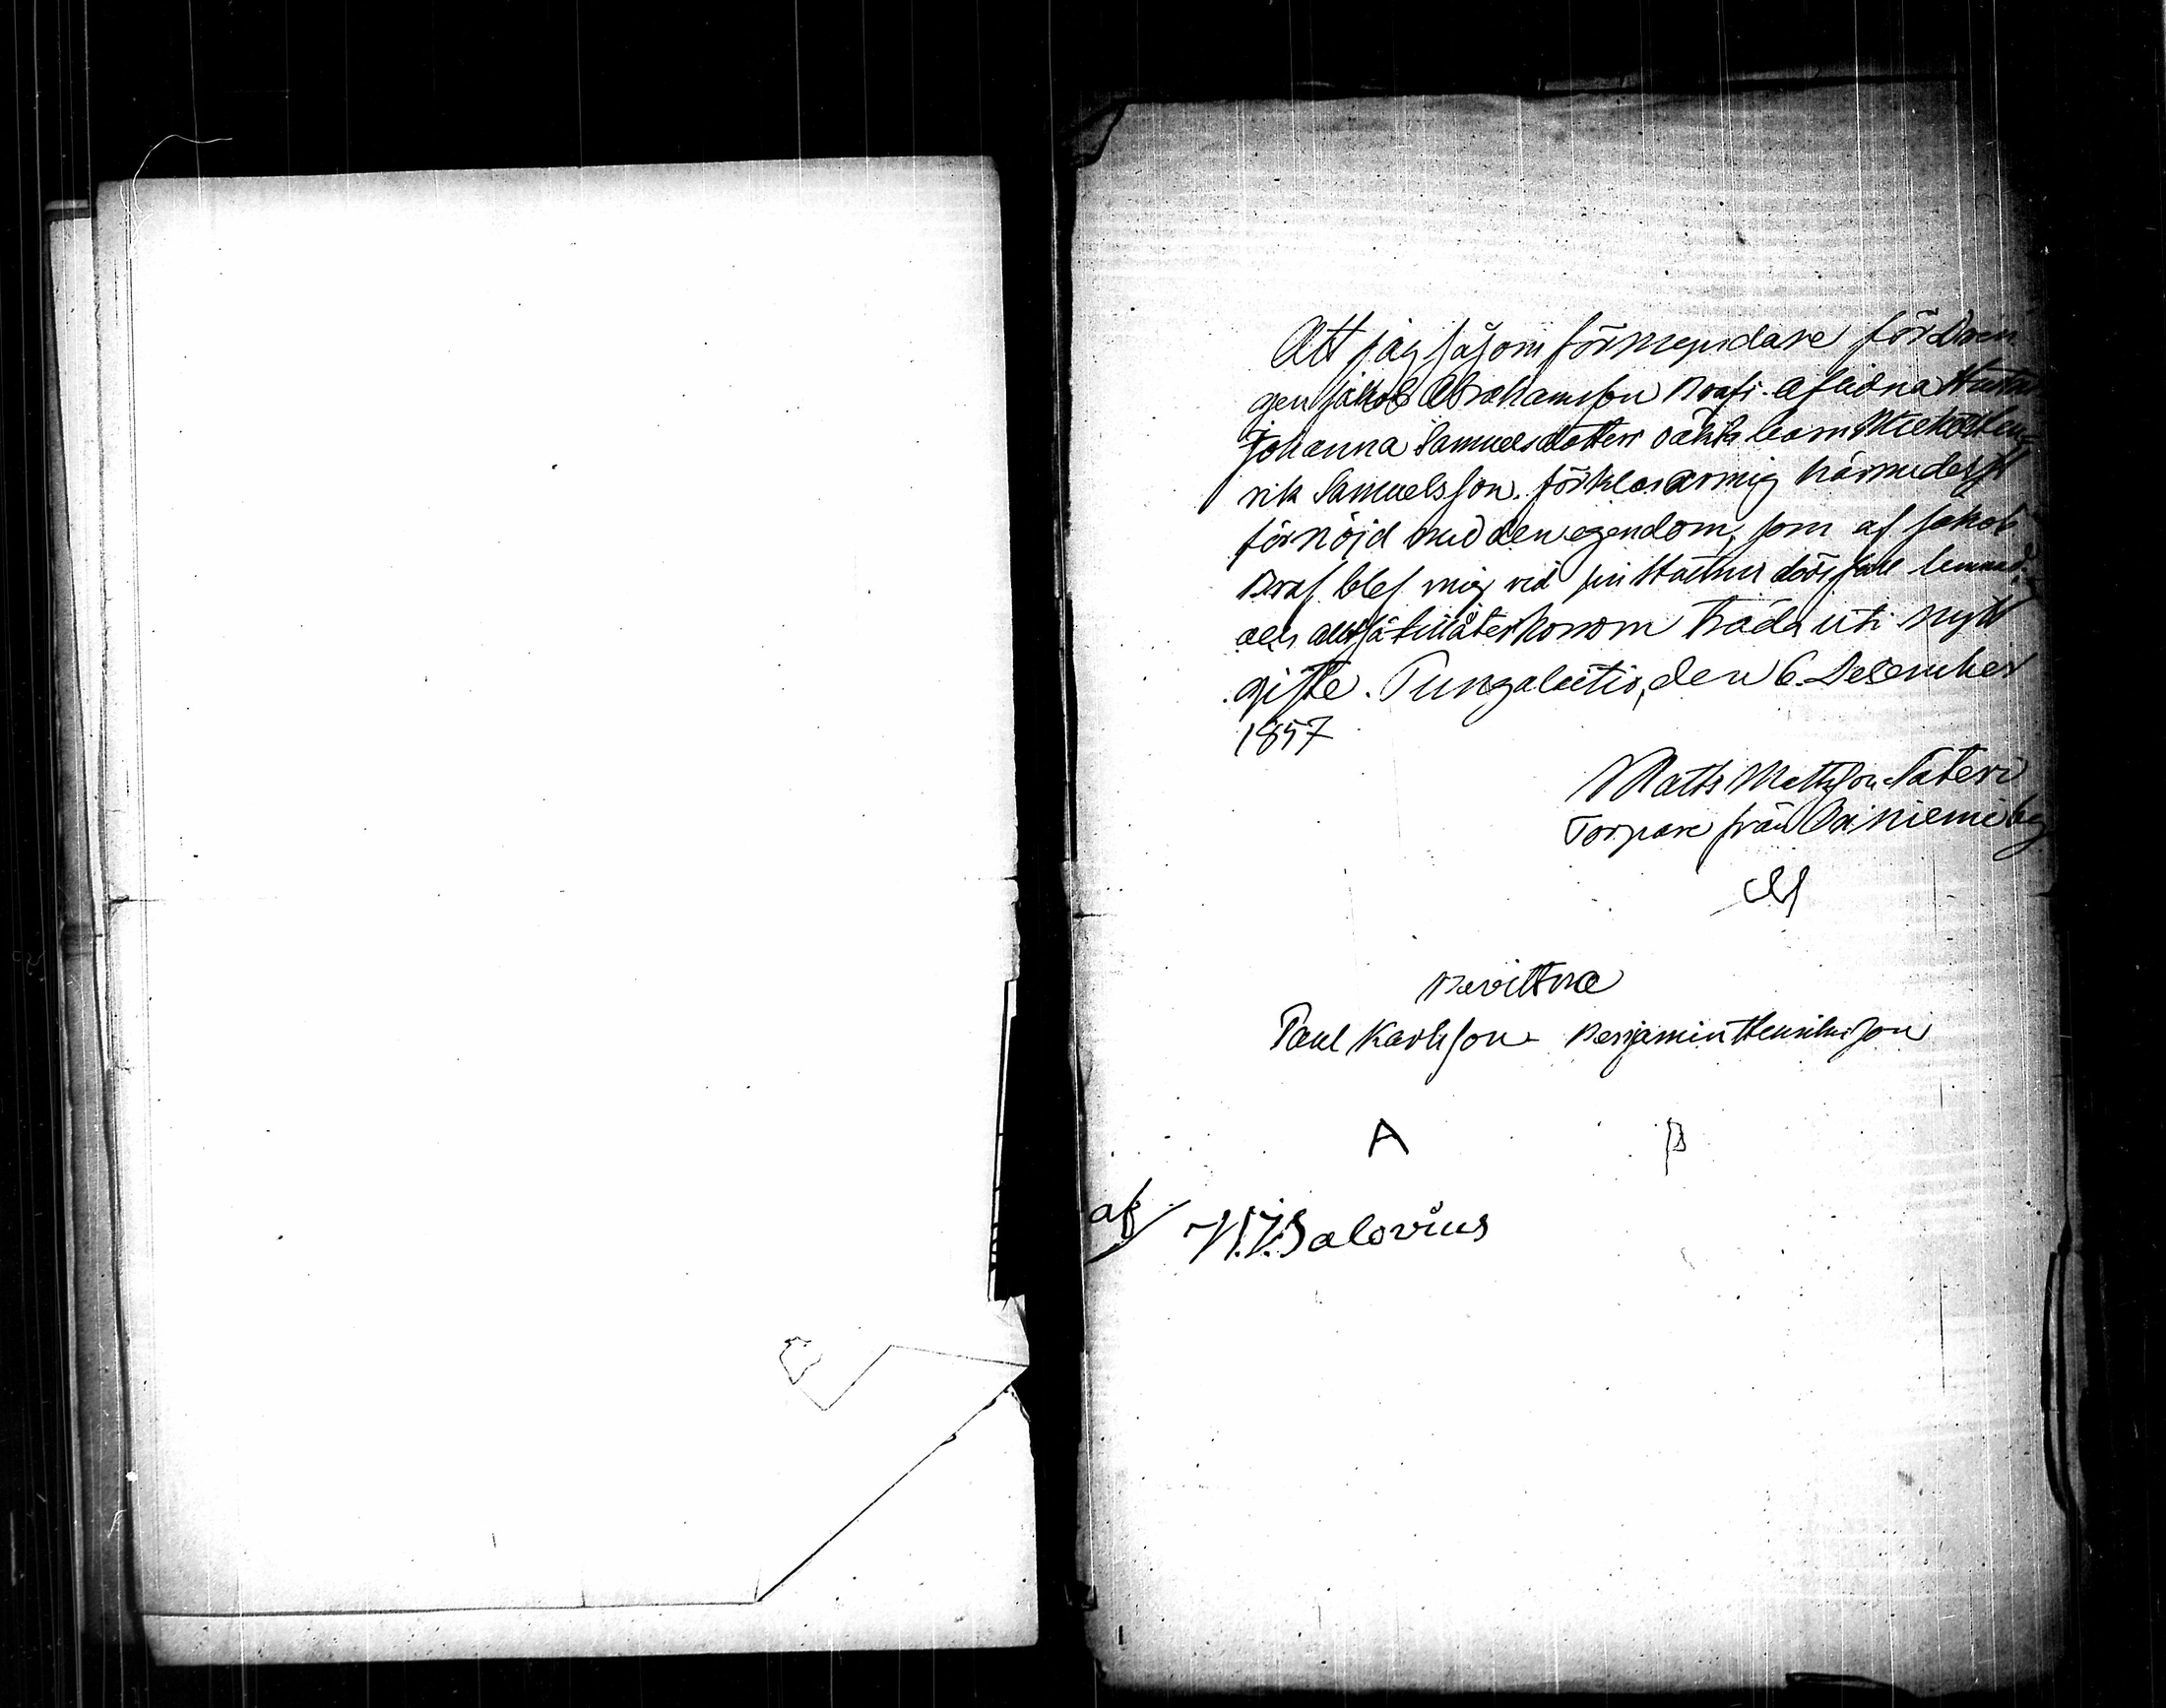 Att jag såsom förmyndare för Drän
gen Jakob Abrahamsson Brafs aflidna Hustru
Johanna Samuelsdotters oäkta barn Mickel Hen=
rik Samuelsson, förklarar mig härmedelst
förnöjd med den egendom, som af Jakob
Braf blef mig vid sin Hustrus dödsfall lemnad,
och alltså tillåter honom träda uti nytt
gifte. Pungalaitio, den 6 December
1857
Matts Mattsson Säteri
Torpare från Oriniemi by
M
Bevittna
Paul Karlsson Benjamin Henriksson
A B
af N. J. Salovius